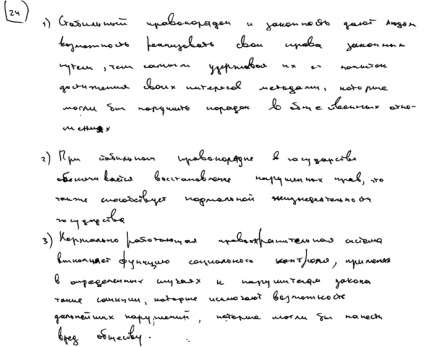 24
1) Стабильный правопорядок и законность дают людям
возможность реализовать свои права законным
путем, тем самым удерживая их от попыток
достижения своих интересов методами, которые
могли бы нарушить порядок в общественных отно-
шениях
2) При стабильном правопорядке в государстве
обеспечивается восстановление нарушенных прав, что
также способствует нормальной жизнедеятельности
государства
3) Нормально работающая правоохранительная система
выполняет функцию социального контроля, применяя
в определенных случаях к нарушителям закона
такие санкции, которые исключают возможность
дальнейших нарушений, которые могли бы нанести
вред обществу.